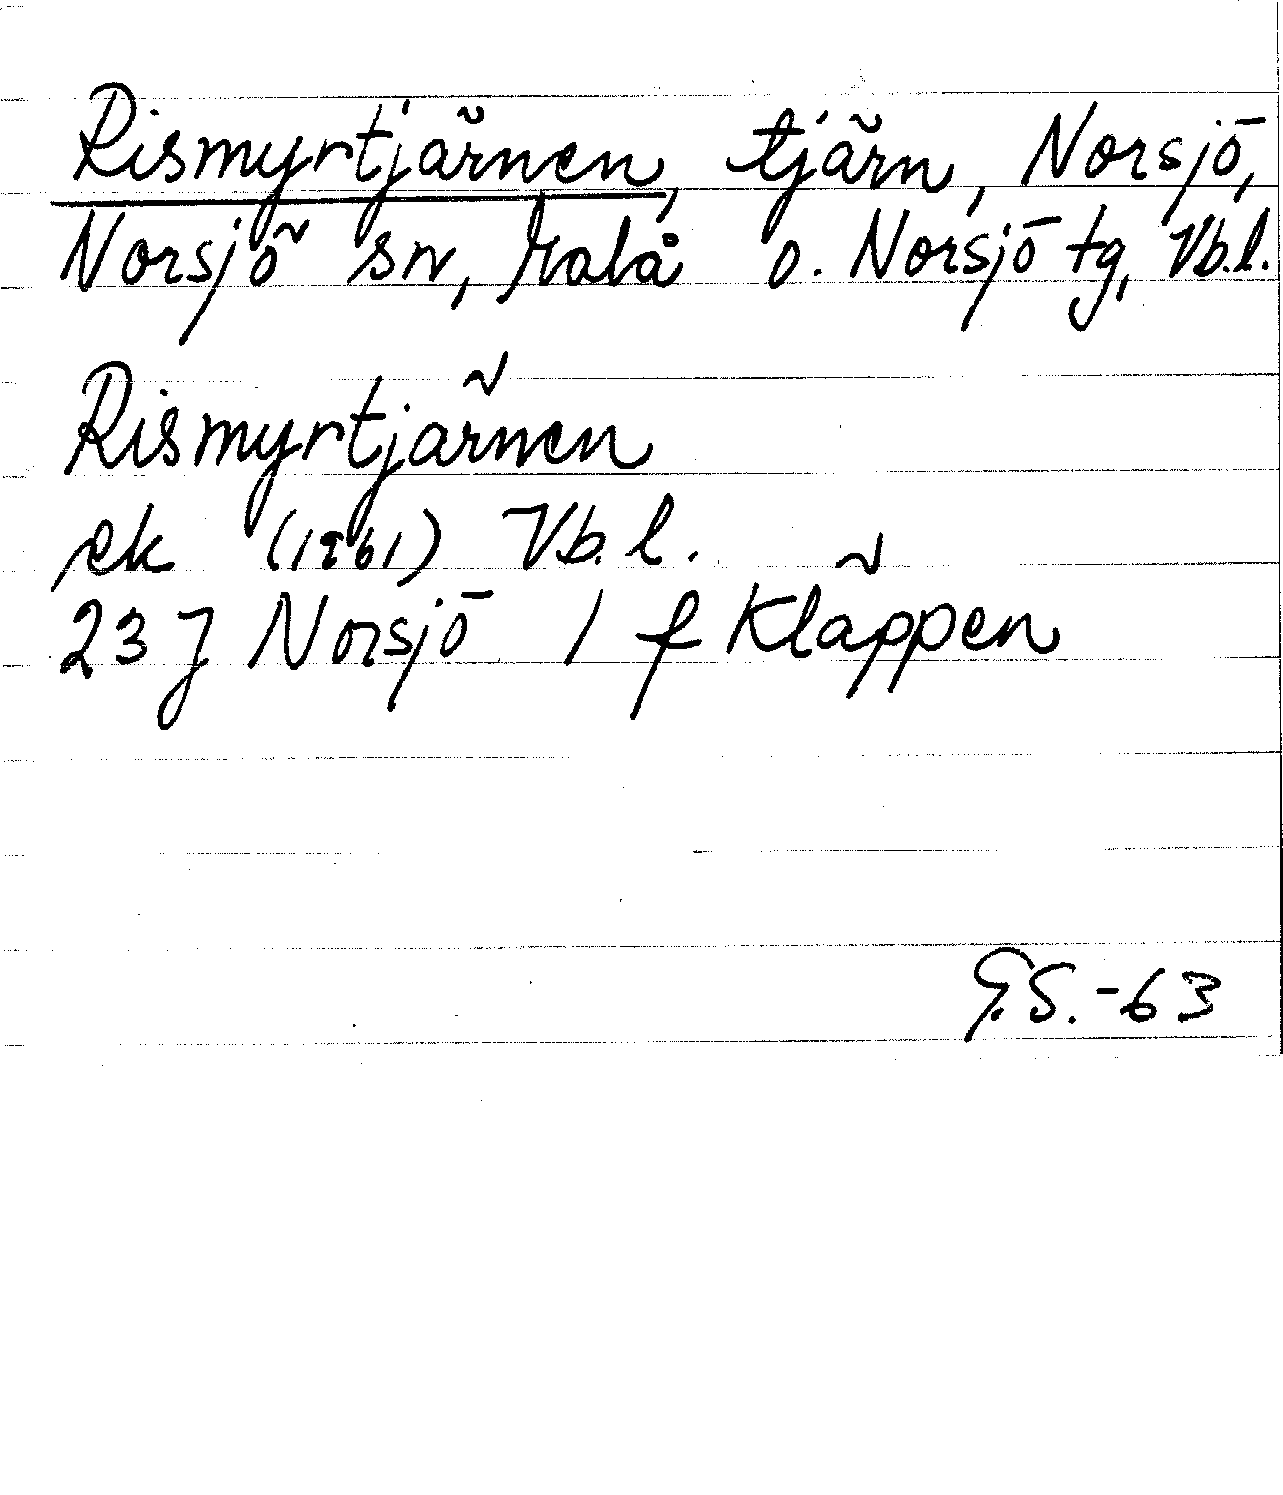 Rismyrtjärnen, tjärn, Norsjö,
Norsjö sn, Malå o. Norsjö tg, Vb.l.
Rismyrtjärnen
ek (1961) Vb.l.
23 J Norsjö 1 f Kläppen
G.S.-63